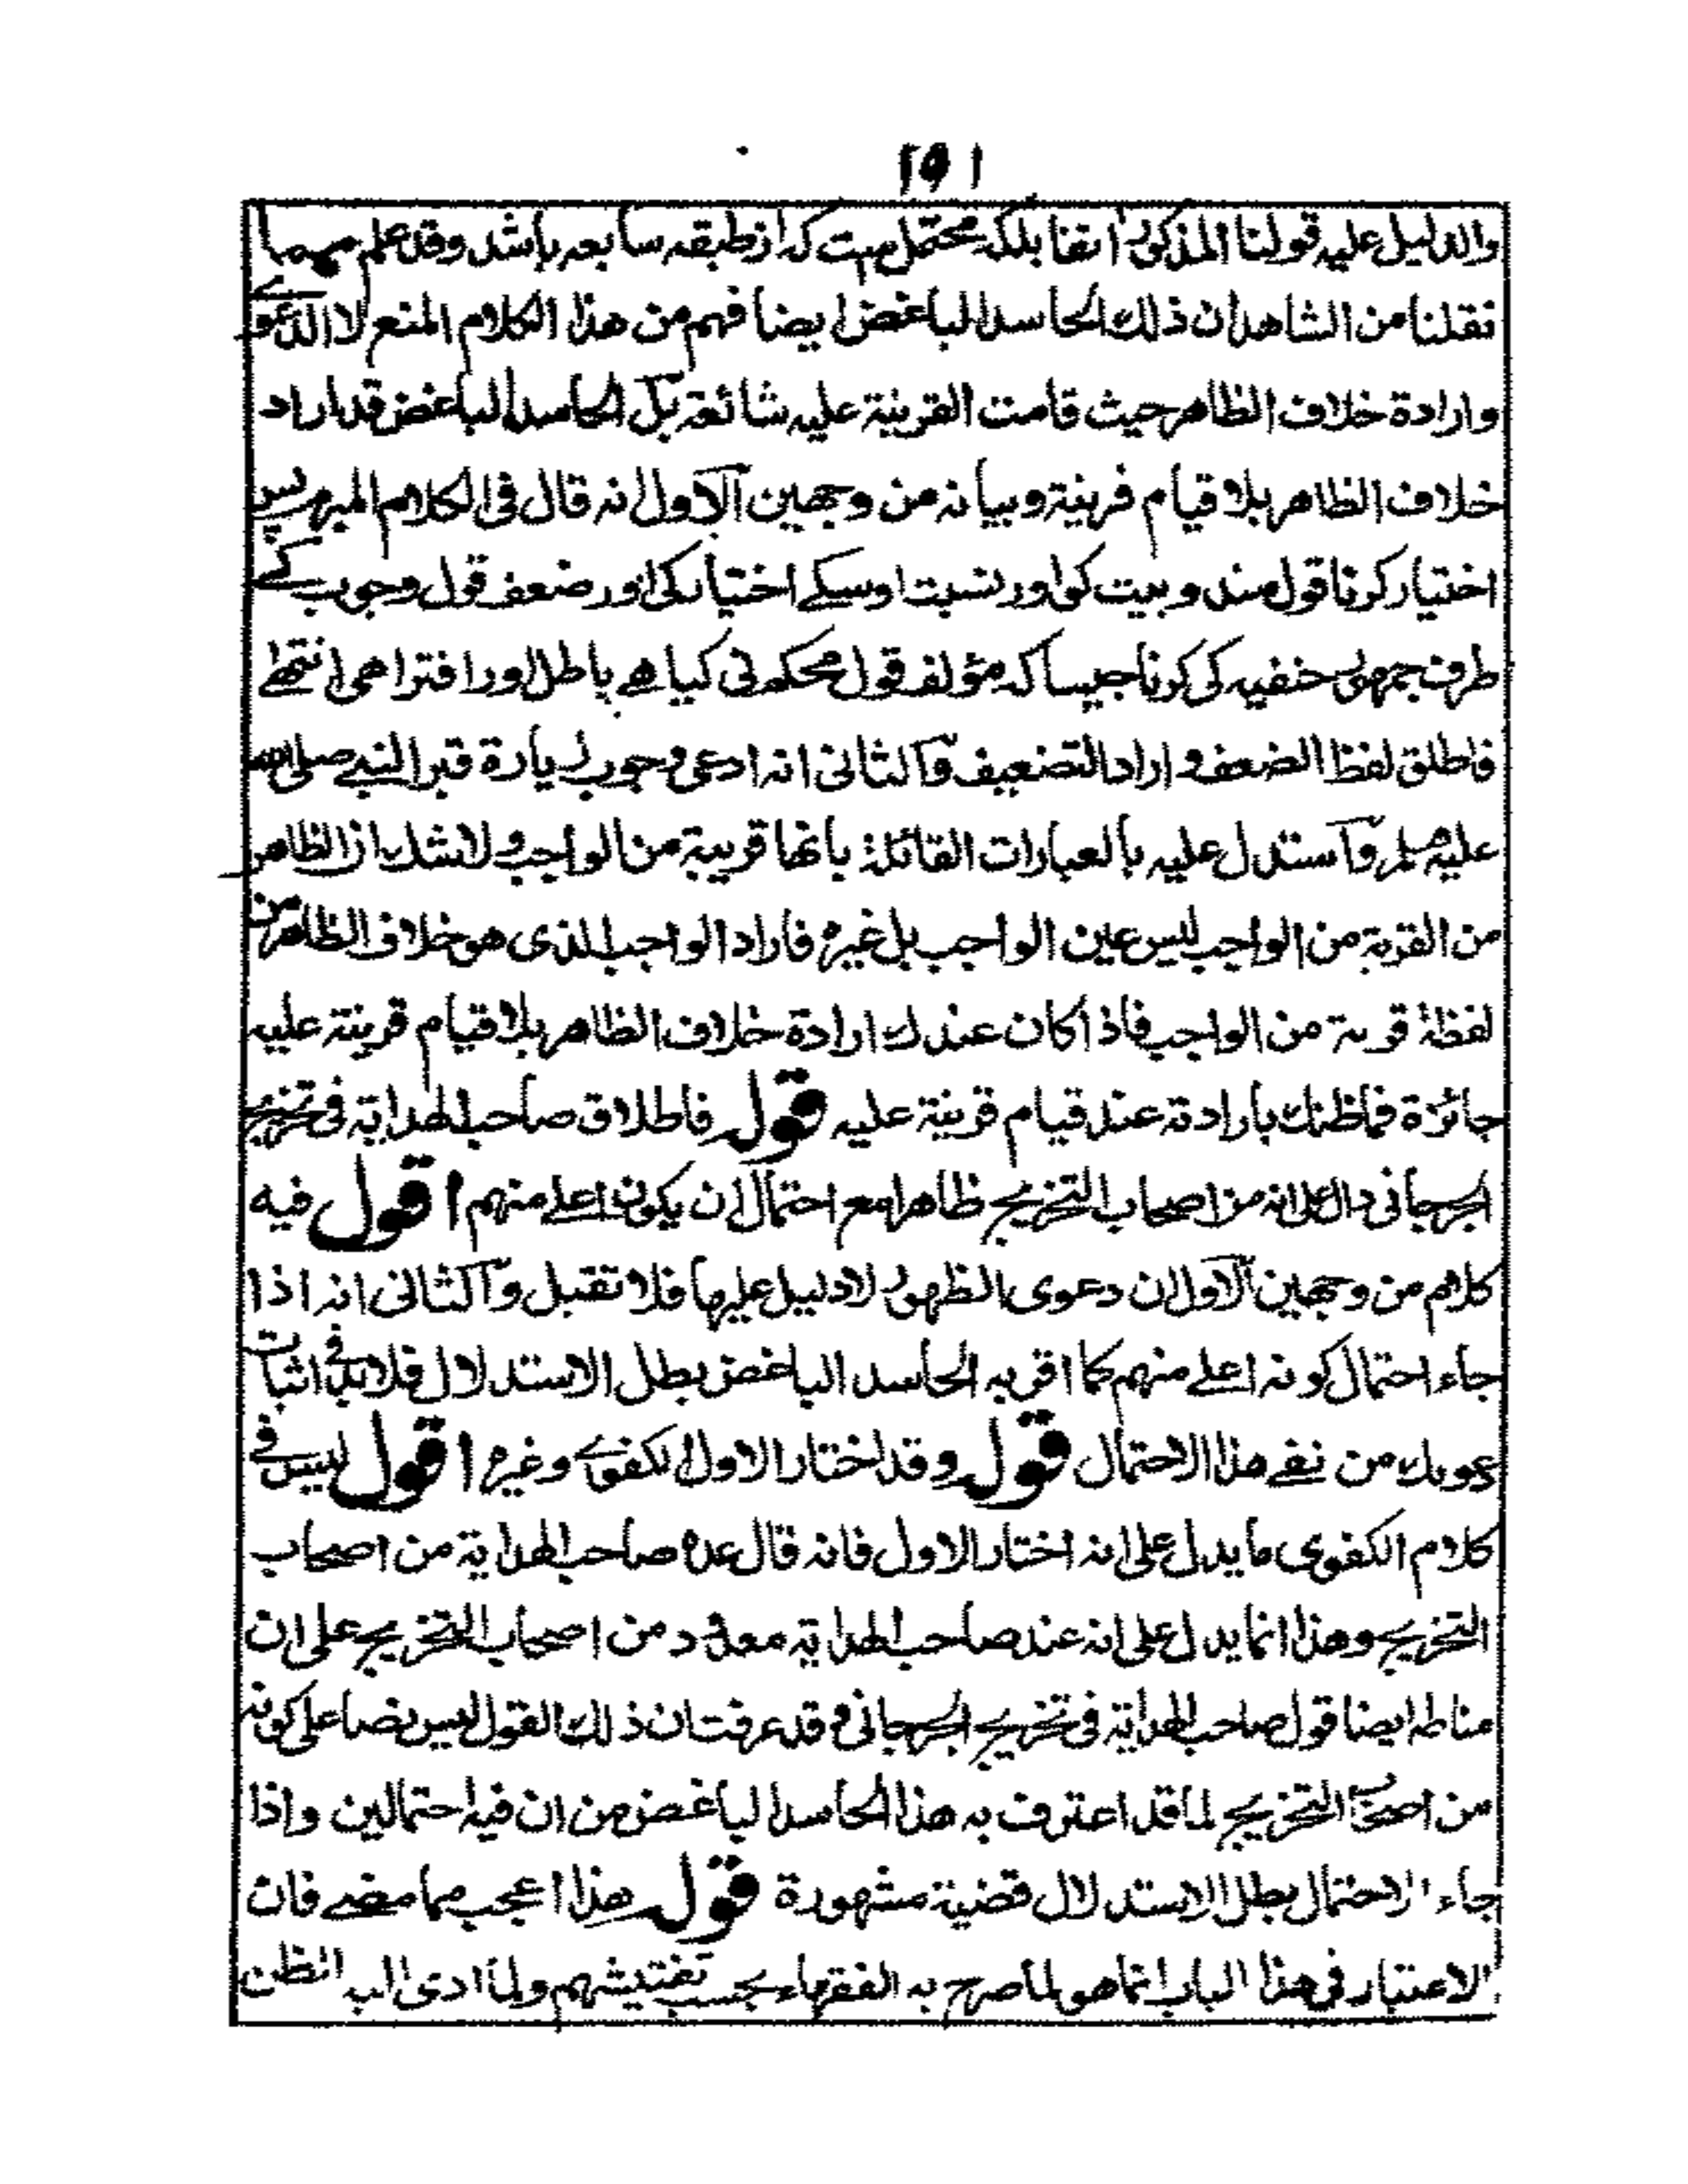 ۱۵۱
والدلیل علیه قولنا المذکور انفا بلکه محتمل ست که از طبقه سابعه باشد وقد علم مهما
نقلنا من الشاهد ان ذلك الحاسد الباغض ایضا فهم من هذا الکلام المنع لا الدعوے
وارادة خلاف الظاهر حیث قامت القرینة علیه شائعة بل الحاسد الباغض قد اراد
خلاف الظاهر بلا قیام قرینة وبیانه من وجهین الاول انه قال فی الکلام المبرم پس
اختیار کرنا قول مندوبیت کو اور نسبت اوسکے اختیار کی اور ضعف قول وجوب کے
طرف جمهور حنفیه کی کرنا جیسا که مؤلف قول محکم نی کیا هے باطل اور افترا هی انتهے
فاطلق لفظ الضعف و اراد التضعیف والثانی انه ادعی وجوب زیارة قبر النبے صلی الله
علیه وسلم واستدل علیه بالعبارات القائلة بانها قریبة من الواجب ولاشك ان الظاهر
من القریبة من الواجب لیس عین الواجب بل غیره فاراد الواجب الذی هو خلاف الظاهر من
لفظة قریبة من الواجب فاذا کان عندك ارادة خلاف الظاهر بلا قیام قرینة علیه
جائزة فما ظنك بارادته عند قیام قرینة علیه قوله فاطلاق صاحب الهدایة فی تخریج
الجرجانی دال علی انه من اصحاب التخریج ظاهرا مع احتمال ان یکون اعلے منهم اقول فیه
کلام من وجهین الاول ان دعوی الظهور لا دلیل علیها فلا تقبل والثانی انه اذا
جاء احتمال کونه اعلے منهم کما اقر به الحاسد الباغض بطل الاستدلال فلا بد فی اثبات
دعویك من نفے هذا الاحتمال قوله وقد اختار الاول الکفوے وغیره اقول لیس فے
کلام الکفوی ما یدل علی انه اختار الاول فانه قال عده صاحب الهدایة من اصحاب
التخریج وهذا انما یدل علی انه عند صاحب الهدایة معدود من اصحاب التخریج علی ان
مناطه ایضا قول صاحب الهدایة فی تخریج الجرجانی وقد عرفت ان ذلك القول لیس نصا علی کونه
من اصحاب التخریج لما قد اعترف به هذا الحاسد الباغض من ان فیه احتمالین واذا
جاء الاحتمال بطل الاستدلال قضیة مشهورة قوله هذا اعجب مما مضے فان
الاعتبار فی هذا الباب انما هو لما صرح به الفقهاء بحسب تفتیشهم ولما ادی الیه الظن